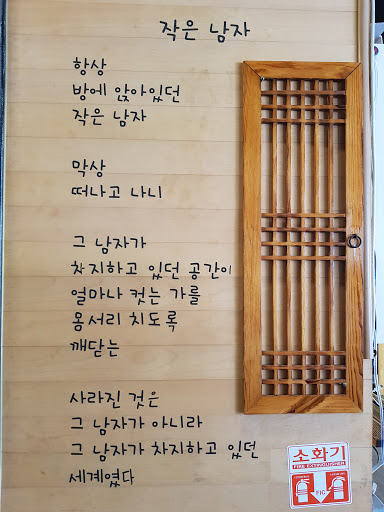 작은 남자
항상
방에 앉아있던
작은 남자
막상
떠나고 나니
그 남자가
차지하고 있던 공간이
얼마나 컷는 가를
몸서리 치도록
깨닫는
사라진 것은
그 남자가 아니라
그 남자가 차지하고 있던
세계였다
소화기
FIRE EXTINGUISHER